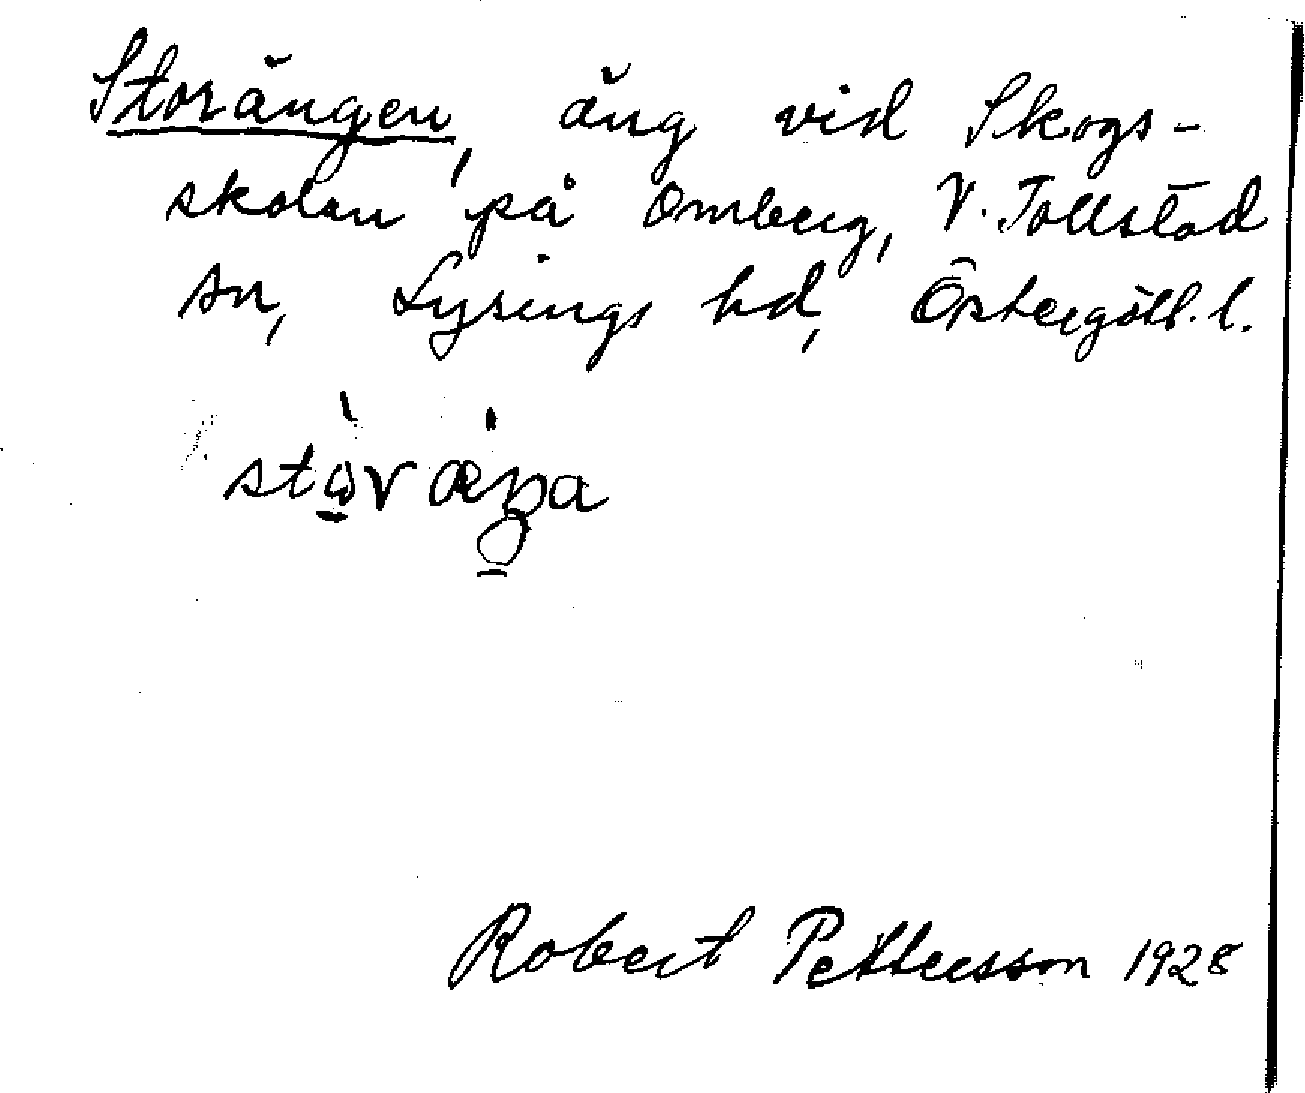 Storängen, äng vid Skogs-
skolan på Omberg, V. Tollstad
sn, Lysings hd, Östergötl. l.
Robert Pettersson 1928